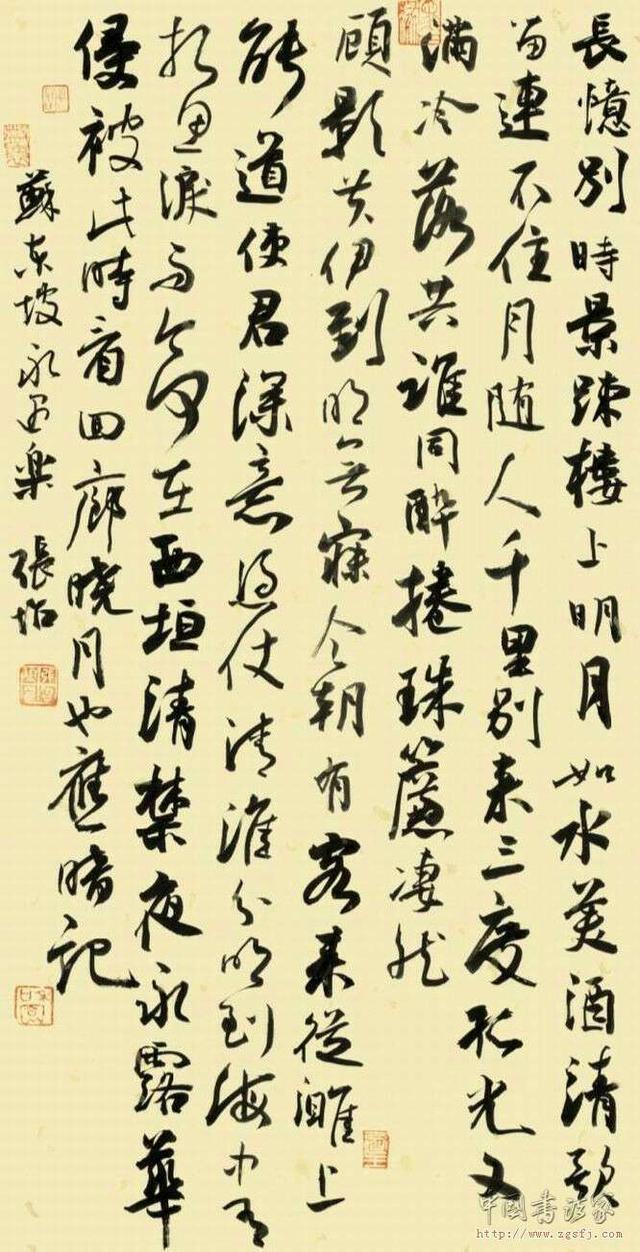 長憶別時景踈樓上明月如水美酒清歌
留連不住月随人千里別来三度孤光又
滿冷落共誰同醉捲珠簾凄然
顧影共伊到明無寐今朝有客来從濉上
能道使君深意凭仗清淮分明到海中有
相思淚而今何在西垣清禁夜永露華
侵被此時看回廊曉月也應暗記
蘇東坡永遇樂 張
中国书法家
http://www.zgsfj.com